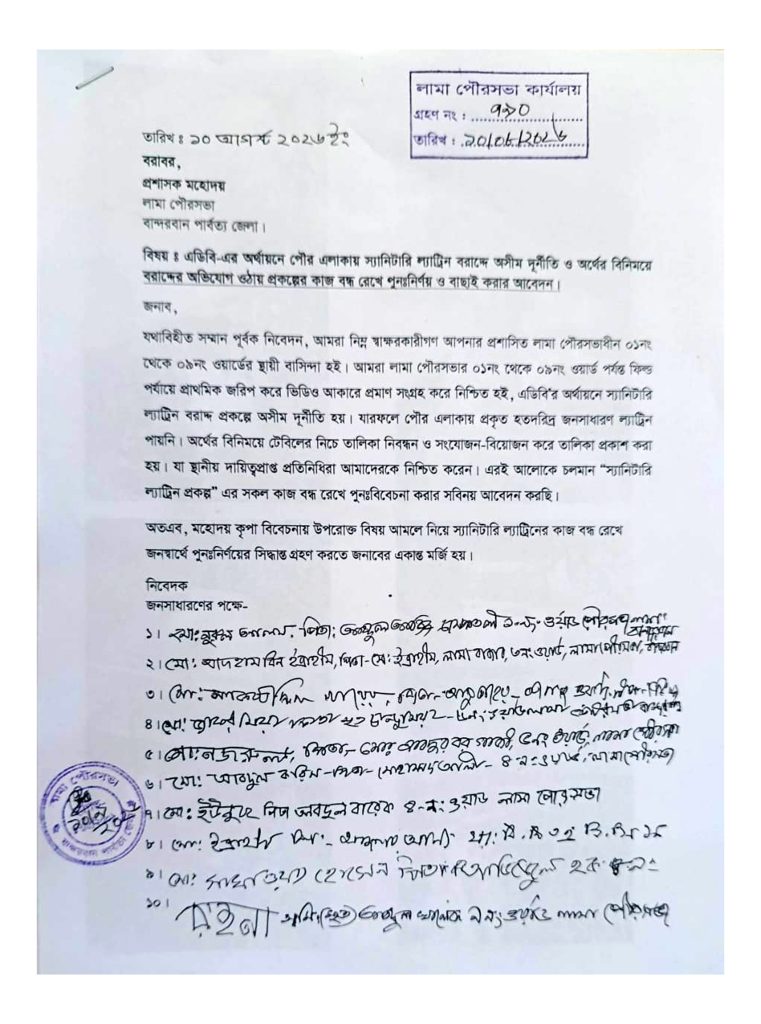 লামা পৌরসভা কার্যালয়
গ্রহণ নং : ৭১০
তারিখ : ১০/০৮/২০২৬
তারিখ ঃ ১০ আগস্ট ২০২৬ ইং
বরাবর,
প্রশাসক মহোদয়
লামা পৌরসভা
বান্দরবান পার্বত্য জেলা।
বিষয় ঃ এডিবি-এর অর্থায়নে পৌর এলাকায় স্যানিটারি ল্যাট্রিন বরাদ্দে অসীম দূর্নীতি ও অর্থের বিনিময়ে
বরাদ্দের অভিযোগ ওঠায় প্রকল্পের কাজ বন্ধ রেখে পুনঃনির্ণয় ও বাছাই করার আবেদন।
জনাব,
যথাবিহীত সম্মান পূর্বক নিবেদন, আমরা নিম্ন স্বাক্ষরকারীগণ আপনার প্রশাসিত লামা পৌরসভাধীন ০১নং
থেকে ০৯নং ওয়ার্ডের স্থায়ী বাসিন্দা হই। আমরা লামা পৌরসভার ০১নং থেকে ০৯নং ওয়ার্ড পর্যন্ত ফিল্ড
পর্যায়ে প্রাথমিক জরিপ করে ভিডিও আকারে প্রমাণ সংগ্রহ করে নিশ্চিত হই, এডিবি'র অর্থায়নে স্যানিটারি
ল্যাট্রিন বরাদ্দ প্রকল্পে অসীম দূর্নীতি হয়। যারফলে পৌর এলাকায় প্রকৃত হতদরিদ্র জনসাধারণ ল্যাট্রিন
পায়নি। অর্থের বিনিময়ে টেবিলের নিচে তালিকা নিবন্ধন ও সংযোজন-বিয়োজন করে তালিকা প্রকাশ করা
হয়। যা স্থানীয় দায়িত্বপ্রাপ্ত প্রতিনিধিরা আমাদেরকে নিশ্চিত করেন। এরই আলোকে চলমান “স্যানিটারি
ল্যাট্রিন প্রকল্প” এর সকল কাজ বন্ধ রেখে পুনঃবিবেচনা করার সবিনয় আবেদন করছি।
অতএব, মহোদয় কৃপা বিবেচনায় উপরোক্ত বিষয় আমলে নিয়ে স্যানিটারি ল্যাট্রিনের কাজ বন্ধ রেখে
জনস্বার্থে পুনঃনির্ণয়ের সিদ্ধান্ত গ্রহণ করতে জনাবের একান্ত মর্জি হয়।
নিবেদক
জনসাধারণের পক্ষে-
১। মো: নুরুল আলম, পিতা:
২। মো: বিন ইব্রাহীম, পিতা- মো: ইব্রাহীম, লামা বাজার, ৩নং ওয়ার্ড, লামা পৌরসভা,
৩। মো:
৪। মো:
৫। মো: নজরুল, পিতা- ওয়ার্ড, লামা পৌরসভা
৬। মো: আবদুল করিম- পিতা- মোহাম্মদ আলী- ৪ নং ওয়ার্ড, লামা পৌরসভা
৭। মো: ইউনুছ পিতা আবদুল বারেক ৪-নং ওয়াড লামা পৌরসভা
৮। মো: ইব্রাহীম
৯। মো: হোসেন পিতা হক
১০। রহিমা নং ওয়ার্ড লামা পৌরসভা
লামা পৌরসভা
বান্দরবান পার্বত্য জেলা